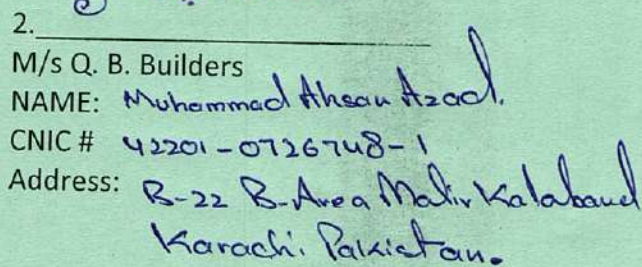 2.
M/s Q. B. Builders
NAME: Muhammad Ahsan Azad.
CNIC # 42201-0726748-1
Address: B-22 B-Area Malir Kalaboud
Karachi. Pakistan.